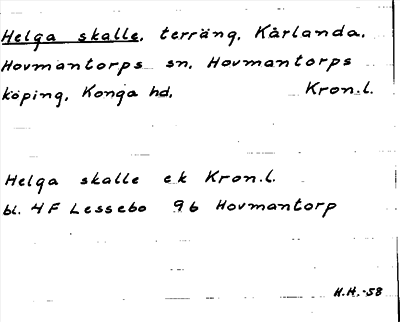 Helga skalle, terräng, Kårlanda,
Hovmantorps sn, Hovmantorps
köping, Konga hd, Kron.l.
Helga skalle ek Kron.l.
bl. 4F Lessebo 9b Hovmantorp
H.H.-58